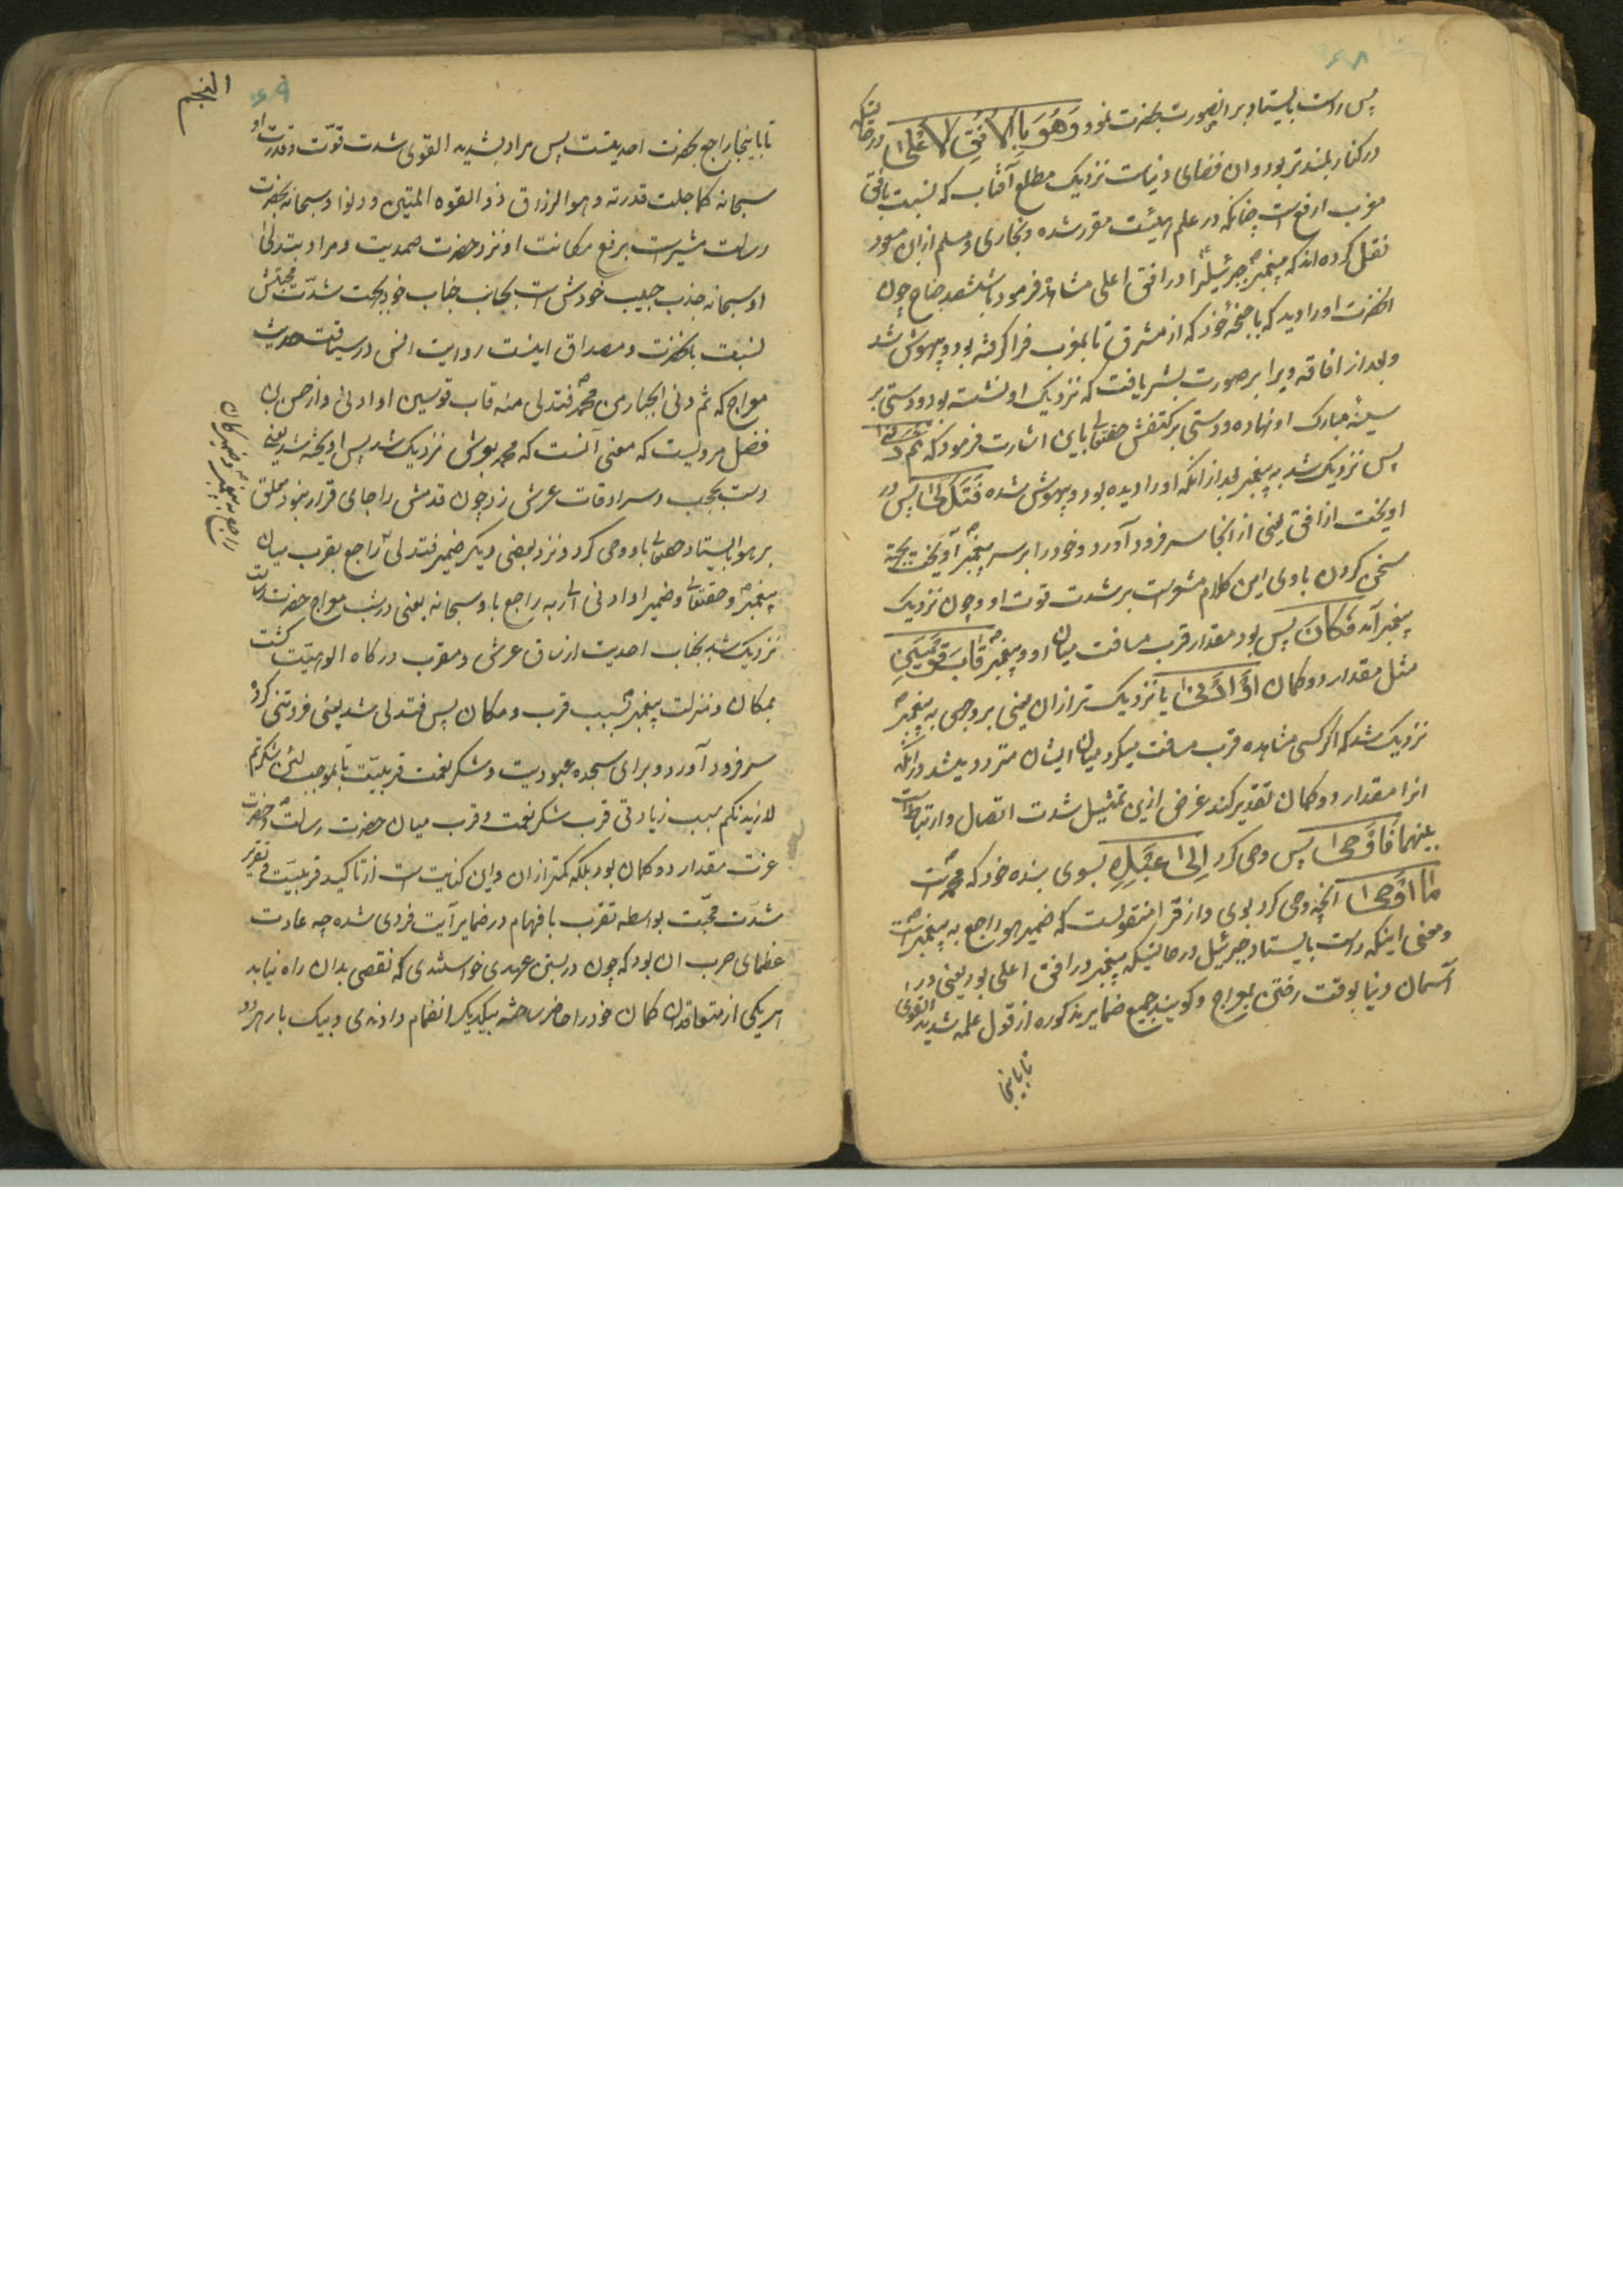 ۶۸
پس راست بایستاد بر انصورت بحضرت نمود وَهُوَ بِالْاُفُقِ الْاَعْلیٰ در حالتیکه
در کنار بلندتر بود و ان فضای دنیاست نزدیک مطلع آفتاب که نسبت بافق
مغرب ارفع است چنانکه در علم هیئت مقرر شده و بخاری و مسلم از ابن مسعود
نقل کرده‌اند که پیغمبر جبرئیل را در افق اعلی مشاهده فرمود با ششصد جناح چون
انحضرت او را دید که با اجنحه خود که از مشرق تا بمغرب فرا گرفته بود بیهوش شد
و بعد از افاقه ویرا بر صورت بشر یافت که نزدیک او نشسته بود و دستی بر
سینه مبارک او نهاده و دستی بر کتفش حقتعالی باین اشارت فرمود که ثُمَّ دَنیٰ
پس نزدیک شد به پیغمبر بعد از انکه او را دیده بود و بیهوش شده فَتَدَلّیٰ پس در
اویخت از افق یعنی از انجا سر فرود آورد و خود را بر سر پیغمبر آویخت بجهة
سخن کردن با وی این کلام مشعر است بر شدت قوت او و چون نزدیک
پیغمبر آمد فَکَانَ پس بود مقدار قرب مسافت میان او و پیغمبر قَابَ قَوْسَیْنِ
مثل مقدار دو کمان اَوْ اَدْنیٰ یا نزدیک تر از ان یعنی بر وجهی به پیغمبر
نزدیک شد که اگر کسی مشاهده قرب مسافت میکرد میان ایشان متردد میشد در انکه
انرا مقدار دو کمان تقدیر کند غرض ازین تمثیل شدت اتصال و ارتباط است
بینهما فَاَوْحیٰ پس وحی کرد اِلیٰ عَبْدِهٖ بسوی بنده خود که محمد است
مٰا اَوْحیٰ انچه وحی کرد بوی و از فرا منقولست که ضمیر هو راجع به پیغمبر است
و معنی اینکه راست بایستاد جبرئیل در حالتیکه پیغمبر در افق اعلی بود یعنی در
آسمان دنیا بوقت رفتن بمعراج و گویند جمیع ضمایر مذکوره از قول علمه شدید القوی
تا باینجا
النجم
۶۹
تا باینجا راجع بحضرت احدیتست پس مراد بشدید القوی شدت قوّت و قدرت او
سبحانه کما جلت قدرته و هو الرزاق ذو القوه المتین و دنوا و سبحانه بحضرت
رسالت مشیر است برفع مکانت او نزد حضرت صمدیت و مراد بتدلی
او سبحانه جذب حبیب خودش است بجانب جناب خود بجهت شدّت محبتش
نسبت بانحضرت و مصداق اینست روایت انس در سیاقت حدیث
معراج که ثم دنی الجبار من محمد فتدلی منه قاب قوسین او ادنی و از حسن بن
فضل مرویست که معنی آنست که محمد بعرش نزدیک شد پس اویخته شد یعنی
دست بحجب و سرادقات عرش زد چون قدمش را جائی قرار نبود معلق
بر هوا بایستاد حقتعالی باو وحی کرد و نزد بعضی دیگر ضمیر فتدلی راجع بقرب میان
راجع به پیغمبر
پیغمبر و حقتعالی و ضمیر او ادنی الی ربه راجع باو سبحانه یعنی در شب معراج حضرت رسالت
نزدیک شد بجناب احدیت از ساق عرش و مقرب درگاه الوهیّت گشت
بمکان و منزلت پیغمبر بسبب قرب و مکان پس فتدلی شد یعنی فروتنی کرد
سر فرود آورد و برای سجده عبودیت و شکر نعمت قربیّت تا بموجب لئن شکرتم
لازیدنکم سبب زیادتی قرب شکر نعمت و قرب میان حضرت رسالت و حضرت
عزت مقدار دو کمان بود بلکه کمتر از ان و این کنایت است از تاکید قربیّت و تقریر
شدت محبّت بواسطه تقرب با فهام در ضمایر آیت فردی شده چه عادت
عظمای عرب ان بود که چون در بستن عهدی خواستندی که نقصی بدان راه نیابد
هر یکی از متعاقدان کمان خود را حاضر ساخته بیکدیگر انضمام دادندی و بیک بار هر دو